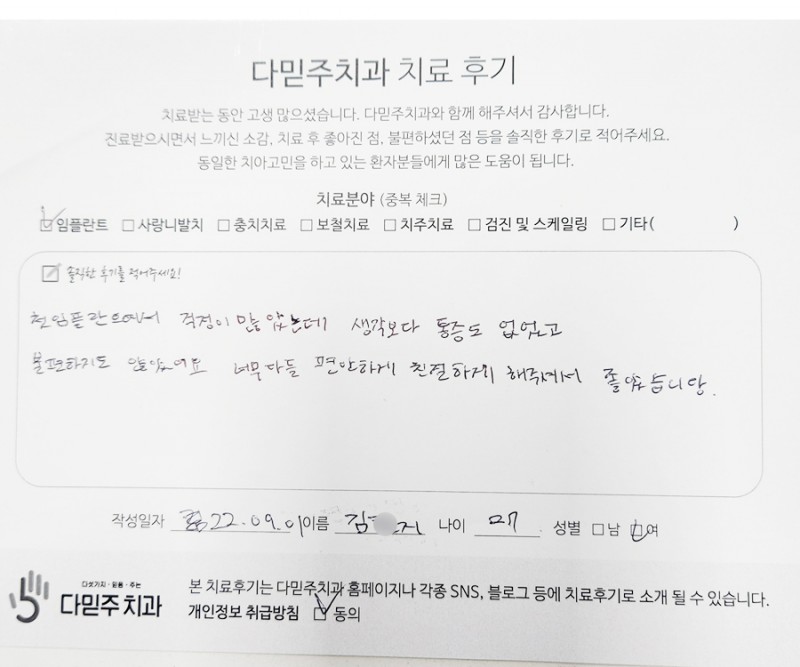 다믿주치과 치료 후기
치료받는 동안 고생 많으셨습니다. 다믿주치과와 함께 해주셔서 감사합니다.
진료받으시면서 느끼신 소감, 치료 후 좋아진 점, 불편하셨던 점 등을 솔직한 후기로 적어주세요.
동일한 치아고민을 하고 있는 환자분들에게 많은 도움이 됩니다.
치료분야 (중복 체크)
☑임플란트 □사랑니발치 □충치치료 □보철치료 □치주치료 □검진 및 스케일링 □기타( )
솔직한 후기를 적어주세요!
첫임플란트여서 걱정이 많았는데 생각보다 통증도 없었고
불편하지도 않았어요 너무다들 편안하게 친절하게 해주셔서 좋았습니당.
작성일자 22.09.01 이름 김 지 나이 성별 □남 ☑여
다섯가지·믿음·주는
다믿주치과
본 치료후기는 다믿주치과 홈페이지나 각종 SNS, 블로그 등에 치료후기로 소개 될 수 있습니다.
개인정보 취급방침 ☑ 동의